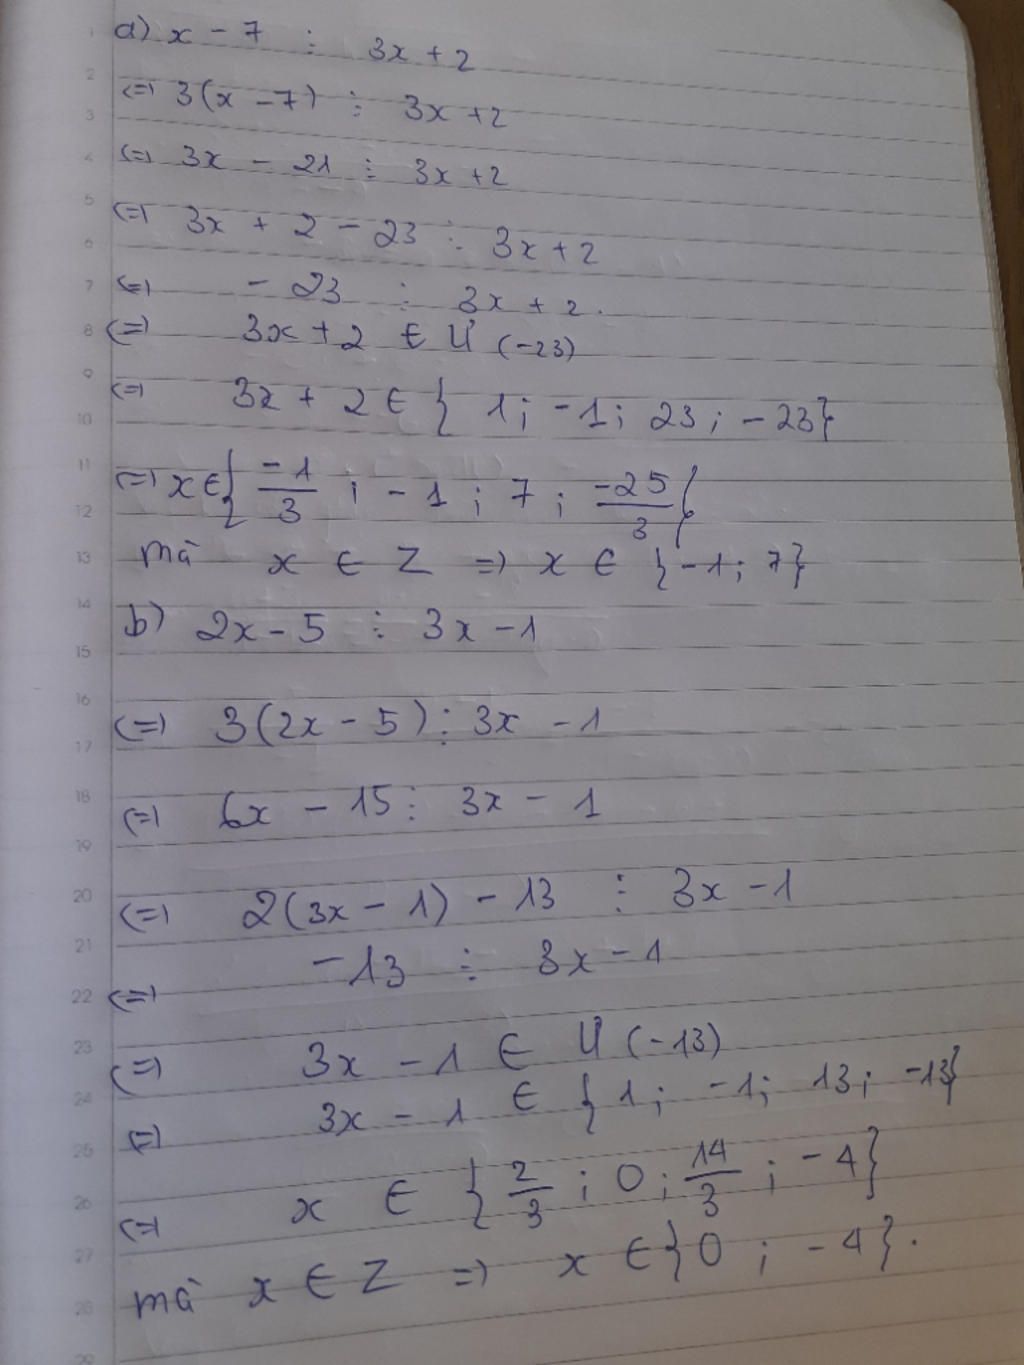 a) x - 7 ⋮ 3x + 2
<=> 3(x - 7) ⋮ 3x + 2
<=> 3x - 21 ⋮ 3x + 2
<=> 3x + 2 - 23 ⋮ 3x + 2
<=> - 23 ⋮ 3x + 2.
<=> 3x + 2 ∈ Ư (-23)
<=> 3x + 2 ∈ { 1 ; -1 ; 23 ; -23}
<=> x ∈ { -1/3 ; -1 ; 7 ; -25/3 }
mà x ∈ Z => x ∈ {-1 ; 7}
b) 2x - 5 ⋮ 3x - 1
<=> 3(2x - 5) ⋮ 3x - 1
<=> 6x - 15 ⋮ 3x - 1
<=> 2(3x - 1) - 13 ⋮ 3x - 1
<=> -13 ⋮ 3x - 1
<=> 3x - 1 ∈ Ư (-13)
<=> 3x - 1 ∈ { 1 ; -1 ; 13 ; -13}
<=> x ∈ { 2/3 ; 0 ; 14/3 ; -4}
mà x ∈ Z => x ∈ {0 ; -4}.